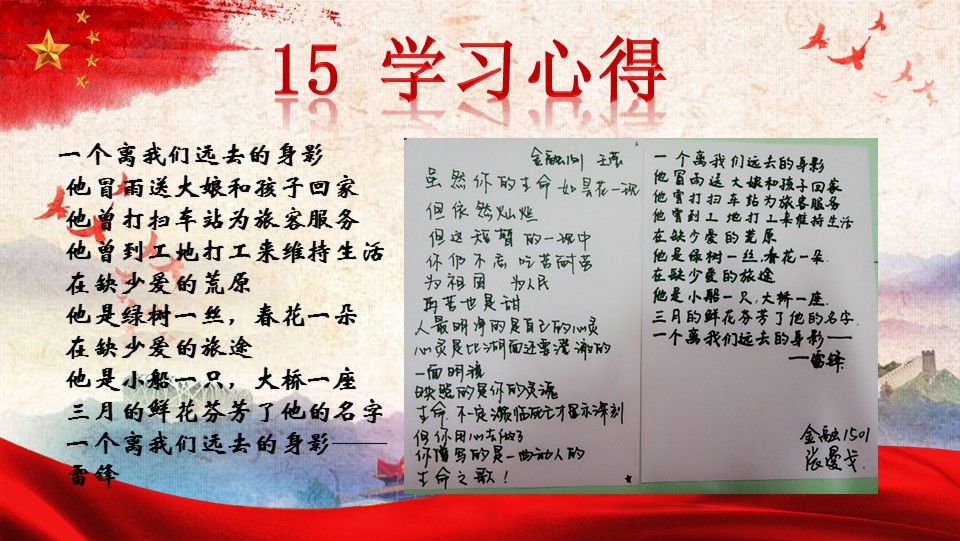 15 学习心得
一个离我们远去的身影
他冒雨送大娘和孩子回家
他曾打扫车站为旅客服务
他曾到工地打工来维持生活
在缺少爱的荒原
他是绿树一丝，春花一朵
在缺少爱的旅途
他是小船一只，大桥一座
三月的鲜花芬芳了他的名字
一个离我们远去的身影——
雷锋
金融1501
虽然你的生命如昙花一现
但依然灿烂
但这短暂的一现中
你仍不忘吃苦耐苦
为祖国 为人民
再苦也是甜
人最明净的是自己的心灵
心灵是比湖面还要澄澈的
一面明镜
映照的是你的灵魂
生命不一定濒临死亡才显示深刻
但你用心去做了
你谱写的是一曲动人的
生命之歌！
一个离我们远去的身影
他冒雨送大娘和孩子回家
他曾打扫车站为旅客服务
他曾到工地打工来维持生活
在缺少爱的荒原
他是绿树一丝,春花一朵
在缺少爱的旅途
他是小船一只,大桥一座.
三月的鲜花芬芳了他的名字.
一个离我们远去的身影——
—雷锋
金融1501
张曼戈